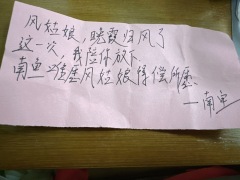 风姑娘，晚霞归风了
这一次，我陪你放下
南鱼唯愿风姑娘得偿所愿
—南鱼